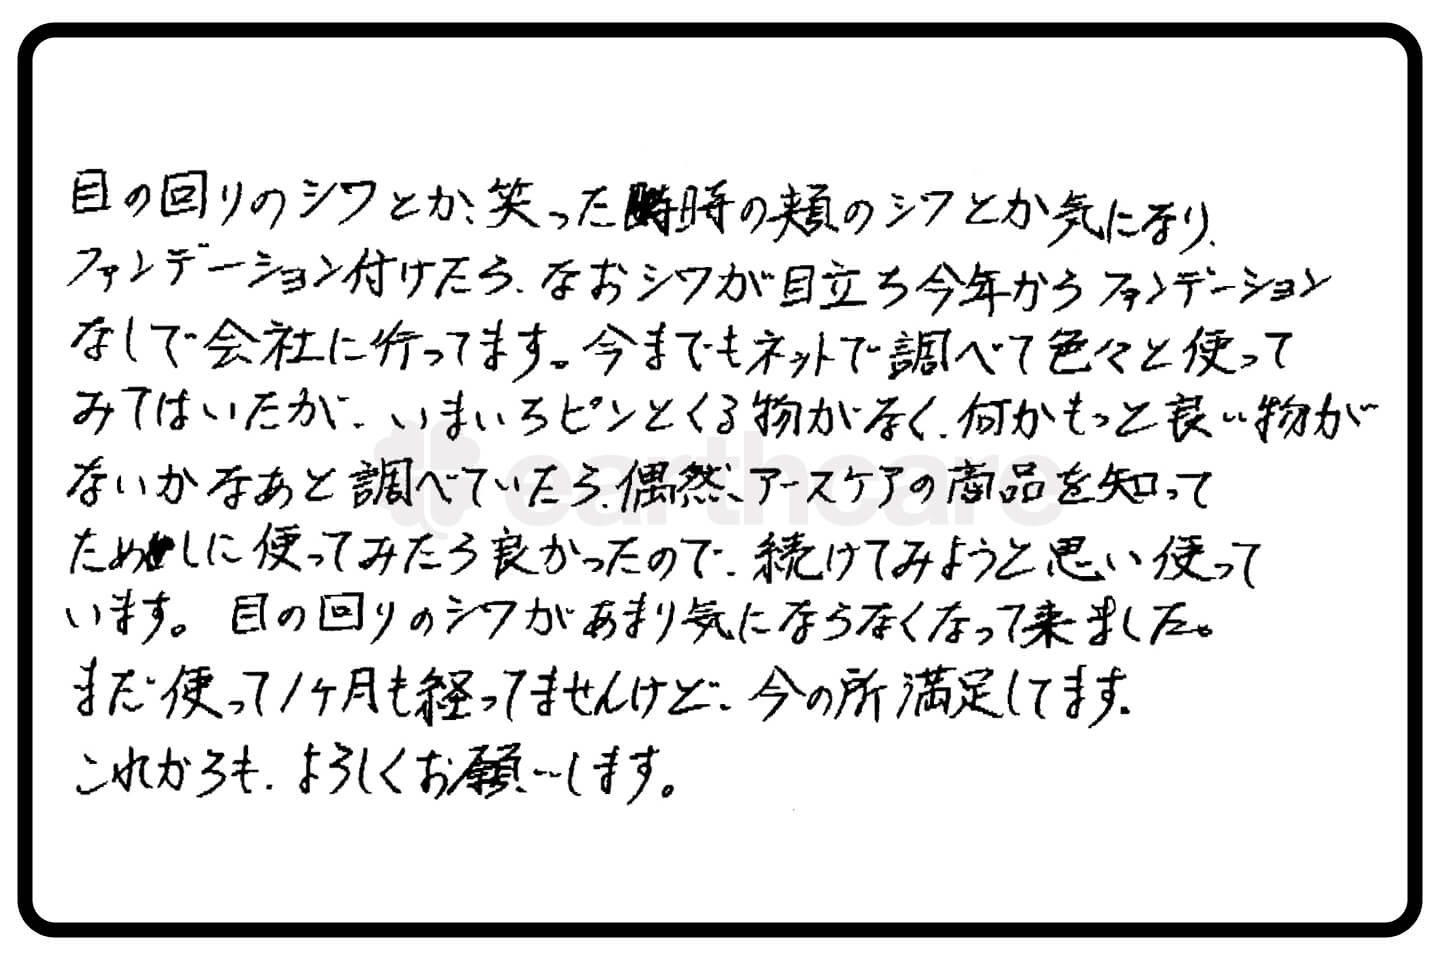 目の回りのシワとか、笑った時の頬のシワとか気になり、
ファンデーション付けたら、なおシワが目立ち今年からファンデーション
なしで会社に行ってます。今までもネットで調べて色々と使って
みてはいたが、いまいちピンとくる物がなく、何かもっと良い物が
ないかなあと調べていたら、偶然、アースケアの商品を知って
ためしに使ってみたら良かったので、続けてみようと思い使って
います。目の回りのシワがあまり気にならなくなって来ました。
まだ使って1ヶ月も経ってませんけど、今の所満足してます。
これからも、よろしくお願いします。
earthcare